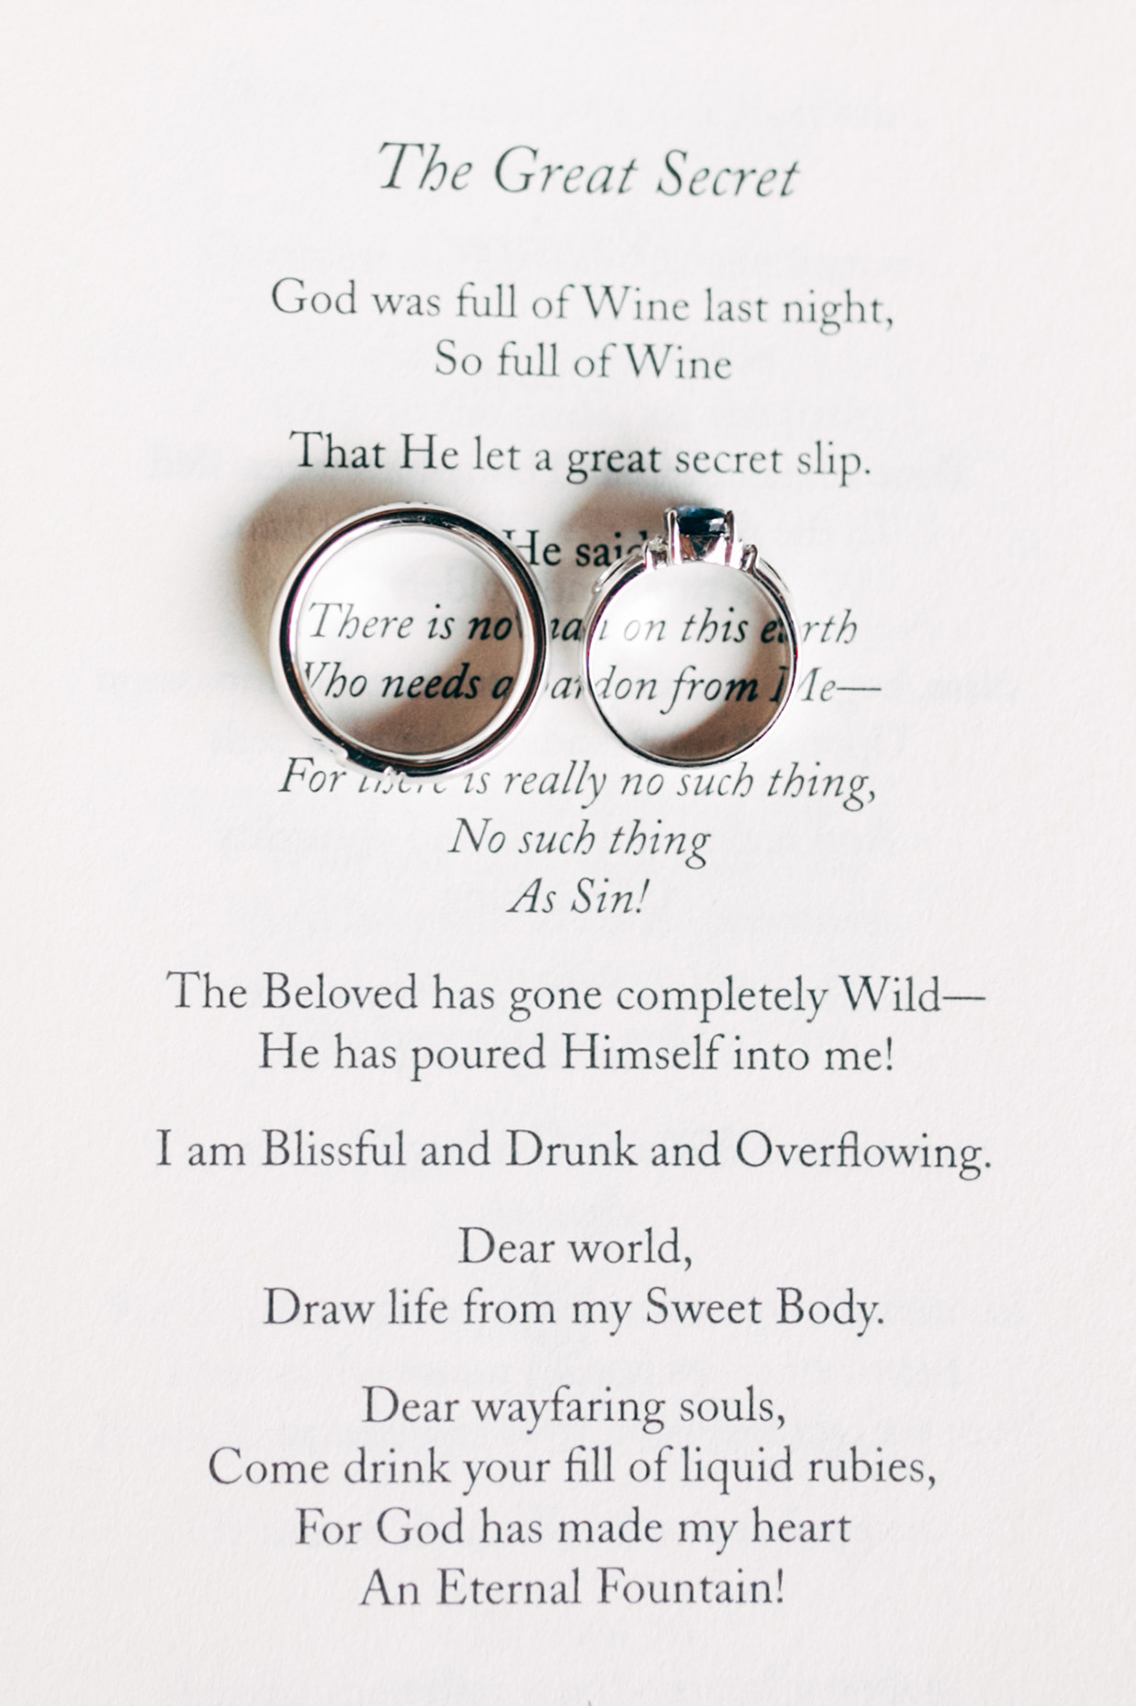 The Great Secret
God was full of Wine last night,
So full of Wine
That He let a great secret slip.
He said
There is no man on this earth
Who needs a pardon from Me—
For there is really no such thing,
No such thing
As Sin!
The Beloved has gone completely Wild—
He has poured Himself into me!
I am Blissful and Drunk and Overflowing.
Dear world,
Draw life from my Sweet Body.
Dear wayfaring souls,
Come drink your fill of liquid rubies,
For God has made my heart
An Eternal Fountain!